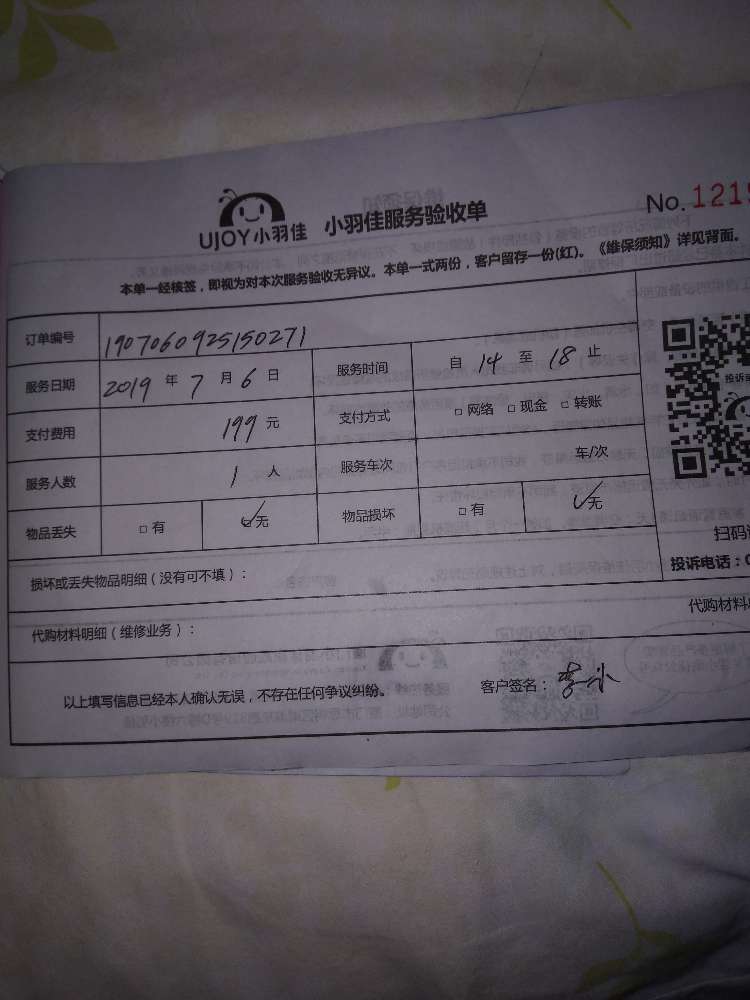 UJOY小羽佳 小羽佳服务验收单
No.1219
本单一经核签，即视为对本次服务验收无异议。本单一式两份，客户留存一份(红)。《维保须知》详见背面。
订单编号 1907060925150271
服务日期 2019 年 7 月 6 日 服务时间 自 14 至 18 止
支付费用 199 元 支付方式 □ 网络 □ 现金 □ 转账
服务人数 1 人 服务车次 车/次
物品丢失 □ 有 ☑无 物品损坏 □ 有 ☑无
投诉
扫码
损坏或丢失物品明细（没有可不填）：
投诉电话：0
代购材料明细（维修业务）：
代购材料
以上填写信息已经本人确认无误，不存在任何争议纠纷。 客户签名：